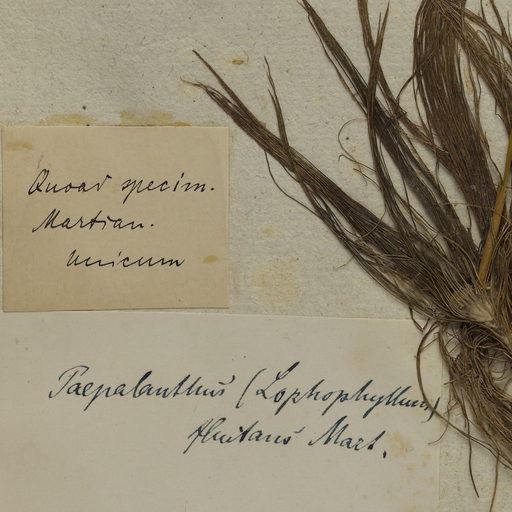 Quoad specim.
Martian.
Unicum
Paepalanthus (Lophophyllum)
fluitans Mart.